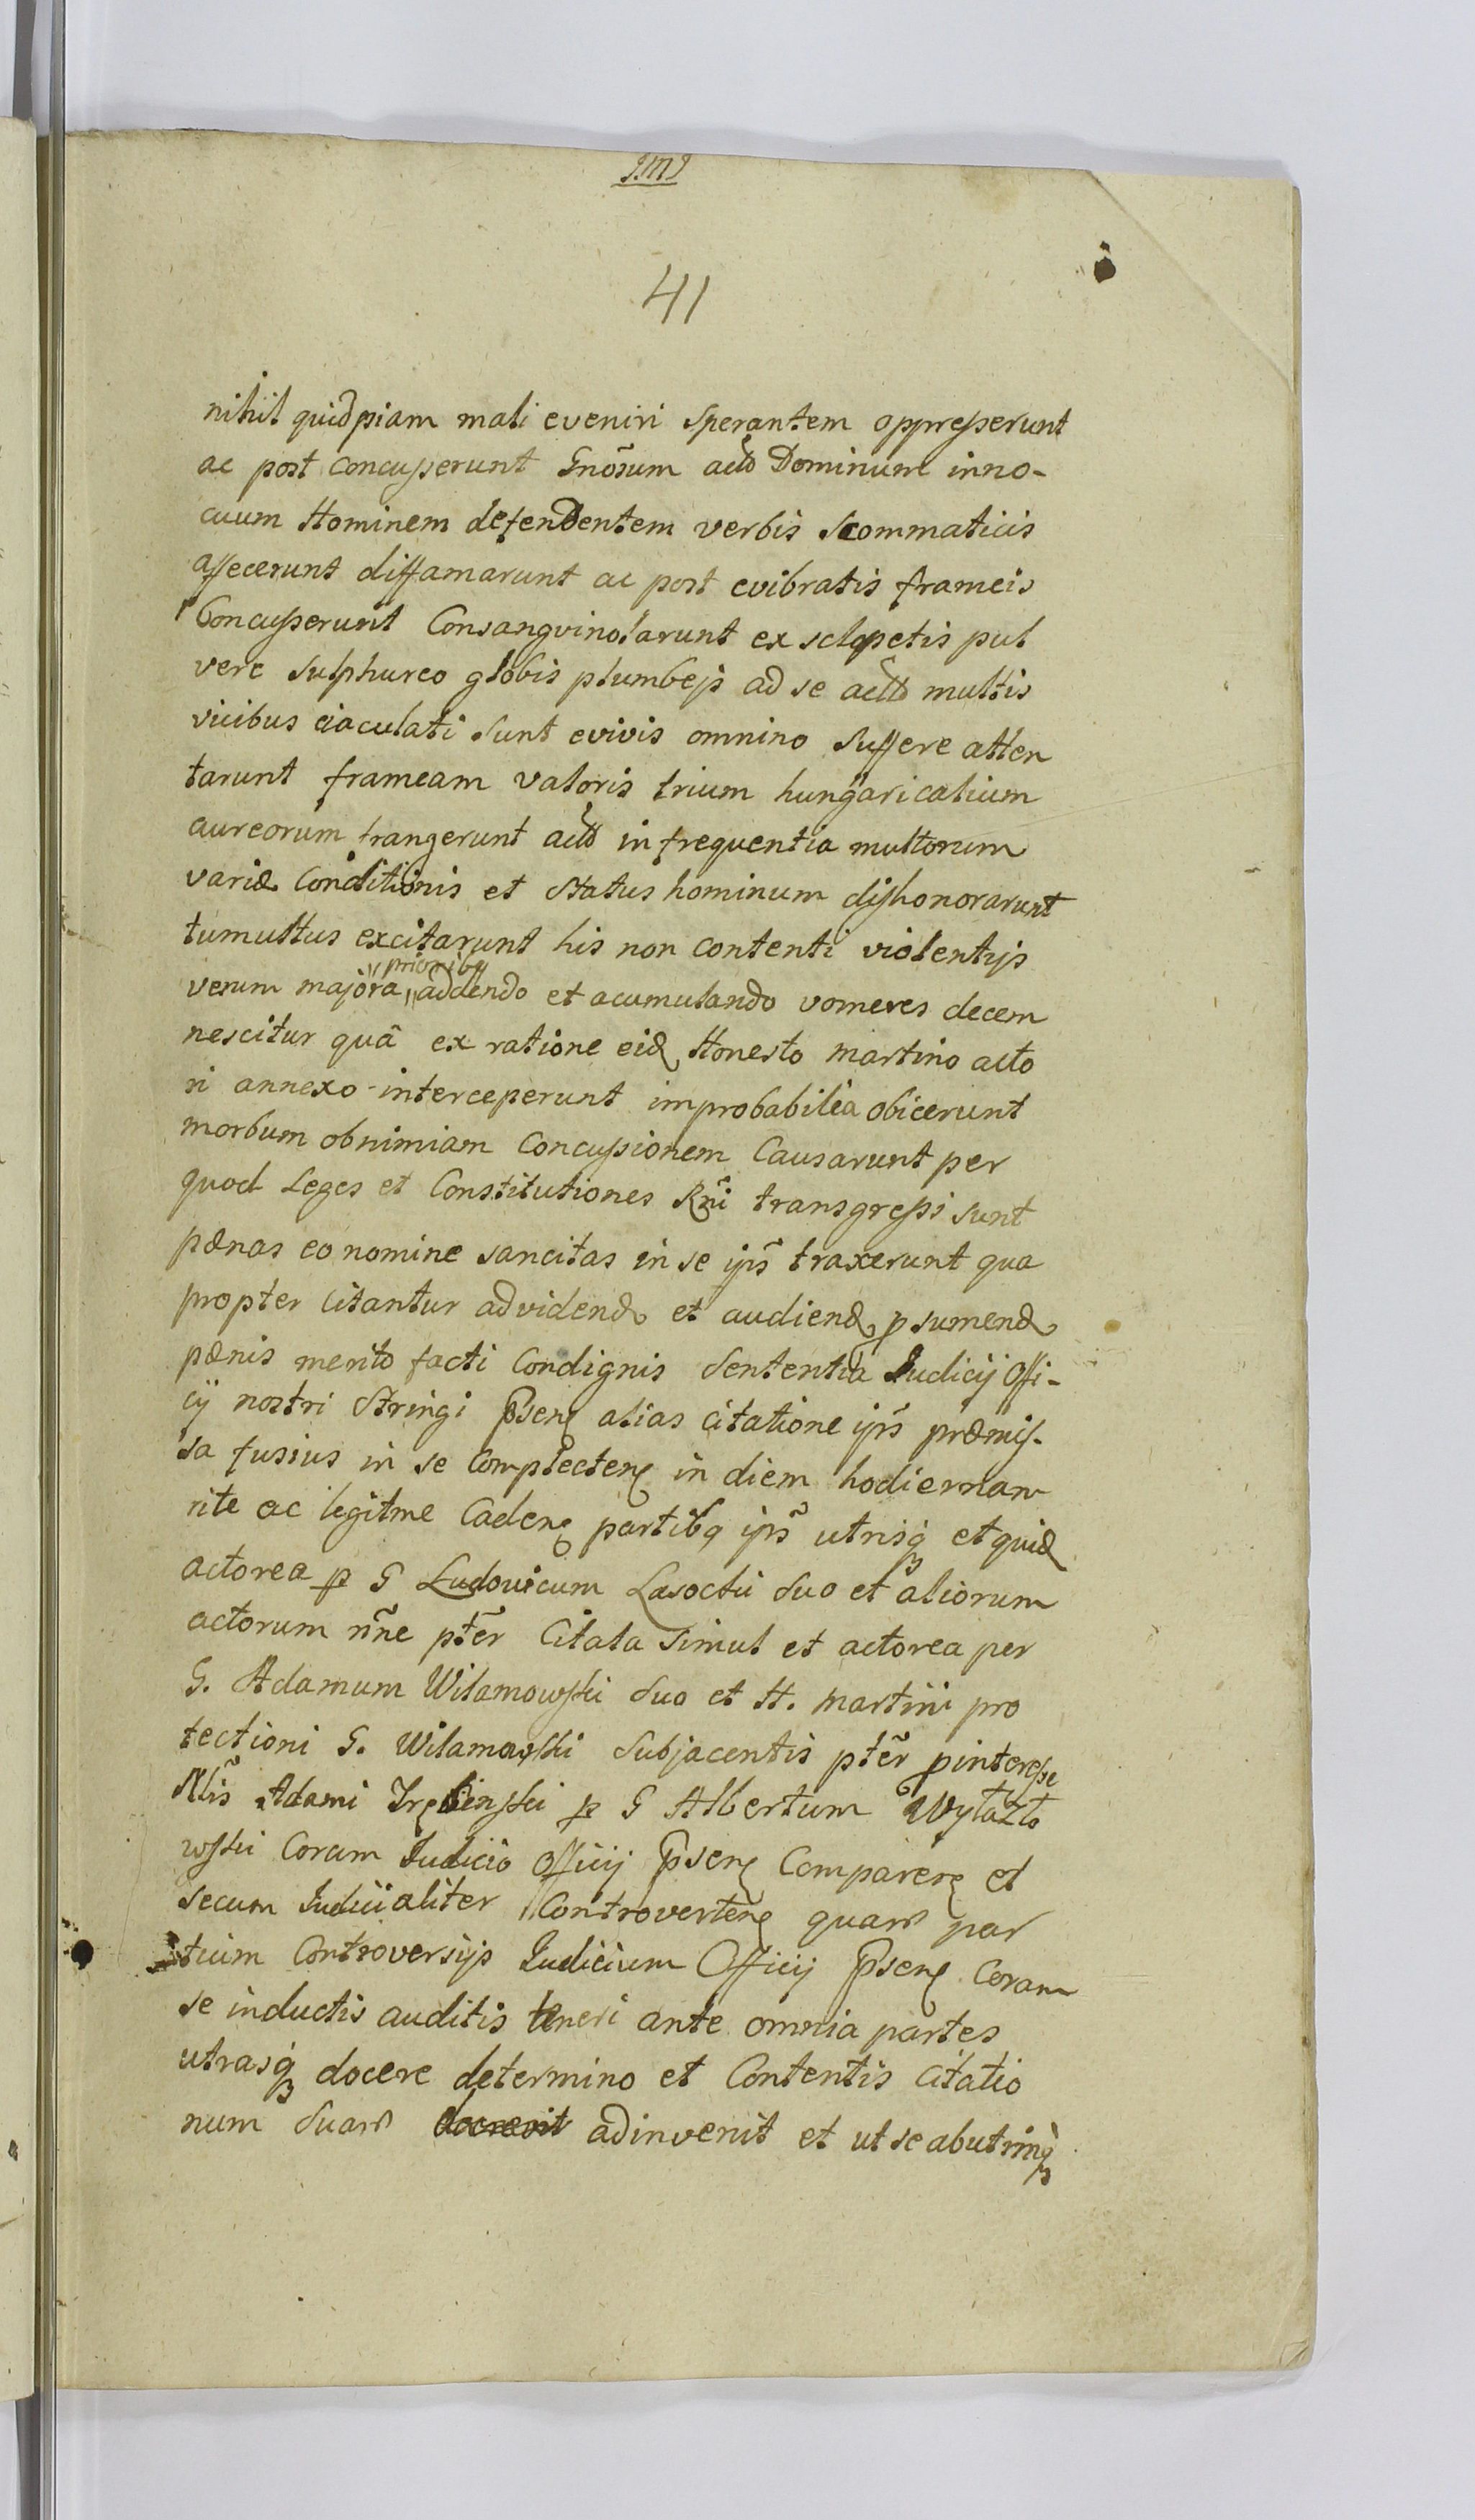 J.M.J
41
nihil quidpiam mali eveniri sperantem oppresserunt
ac post concusserunt Gnõsum actõ Dominum inno-
cuum Hominem defendentem verbis scommaticis
affecerunt diffamarunt ac post evibratis frameis
Concusserunt Consangvinolarunt ex sclopetis pul
vere sulphureo globis plumbejs ad se actõ multis
vicibus eiaculati sunt evivis omnino suffere atten
tarunt frameam valoris trium hungaricalium
aureorum frangerunt actõ in frequentia multorum
variæ Conditionis et status hominum dishonorarunt
tumultus excitarunt his non contenti violentijs
prioribq
verum majora addendo et acumulando vomeres decem
nescitur quâ ex ratione eid Honesto martino acto
ri annexo interceperunt improbabilia obicerunt
morbum obnimiam Concussionem Causarunt per
quod Leges et Constitutiones Rni transgressi sunt
pænas eo nomine sancitas in se ips̃ traxerunt qua
propter citantur ad videnđ et audienđ p sumenđ
pænis merito facti Condignis Sententia Judicij Offi-
cij nostri Stringi P̃senę alias citatione ips̃ præmis-
sa fusius in se Complectenę in diem hodiernam
rite ac legitme Cadenę partibq ips̃ utrisq et quiđ
actorea p G Ludovicum Lasocki suo et aliorum
actorum nñe pt̃er Citata simul et actorea per
G. Adamum Wilamowski suo et H. martini pro
tectioni G. Wilamowski subjacentis pt̃er p interesse
Nlĩs Adami p G Albertum
wski Coram Judicio Officij P̃senę Comparenę et
secum Judicialiter Controvertenę quarũ par
tium Controversijs Judicium Officij P̃senę Coram
se inductis auditis teneri ante omnia partes
utrasq docere determino et Contentis Citatio
num suarũ decrevit adinvenit et ut se abutrinq